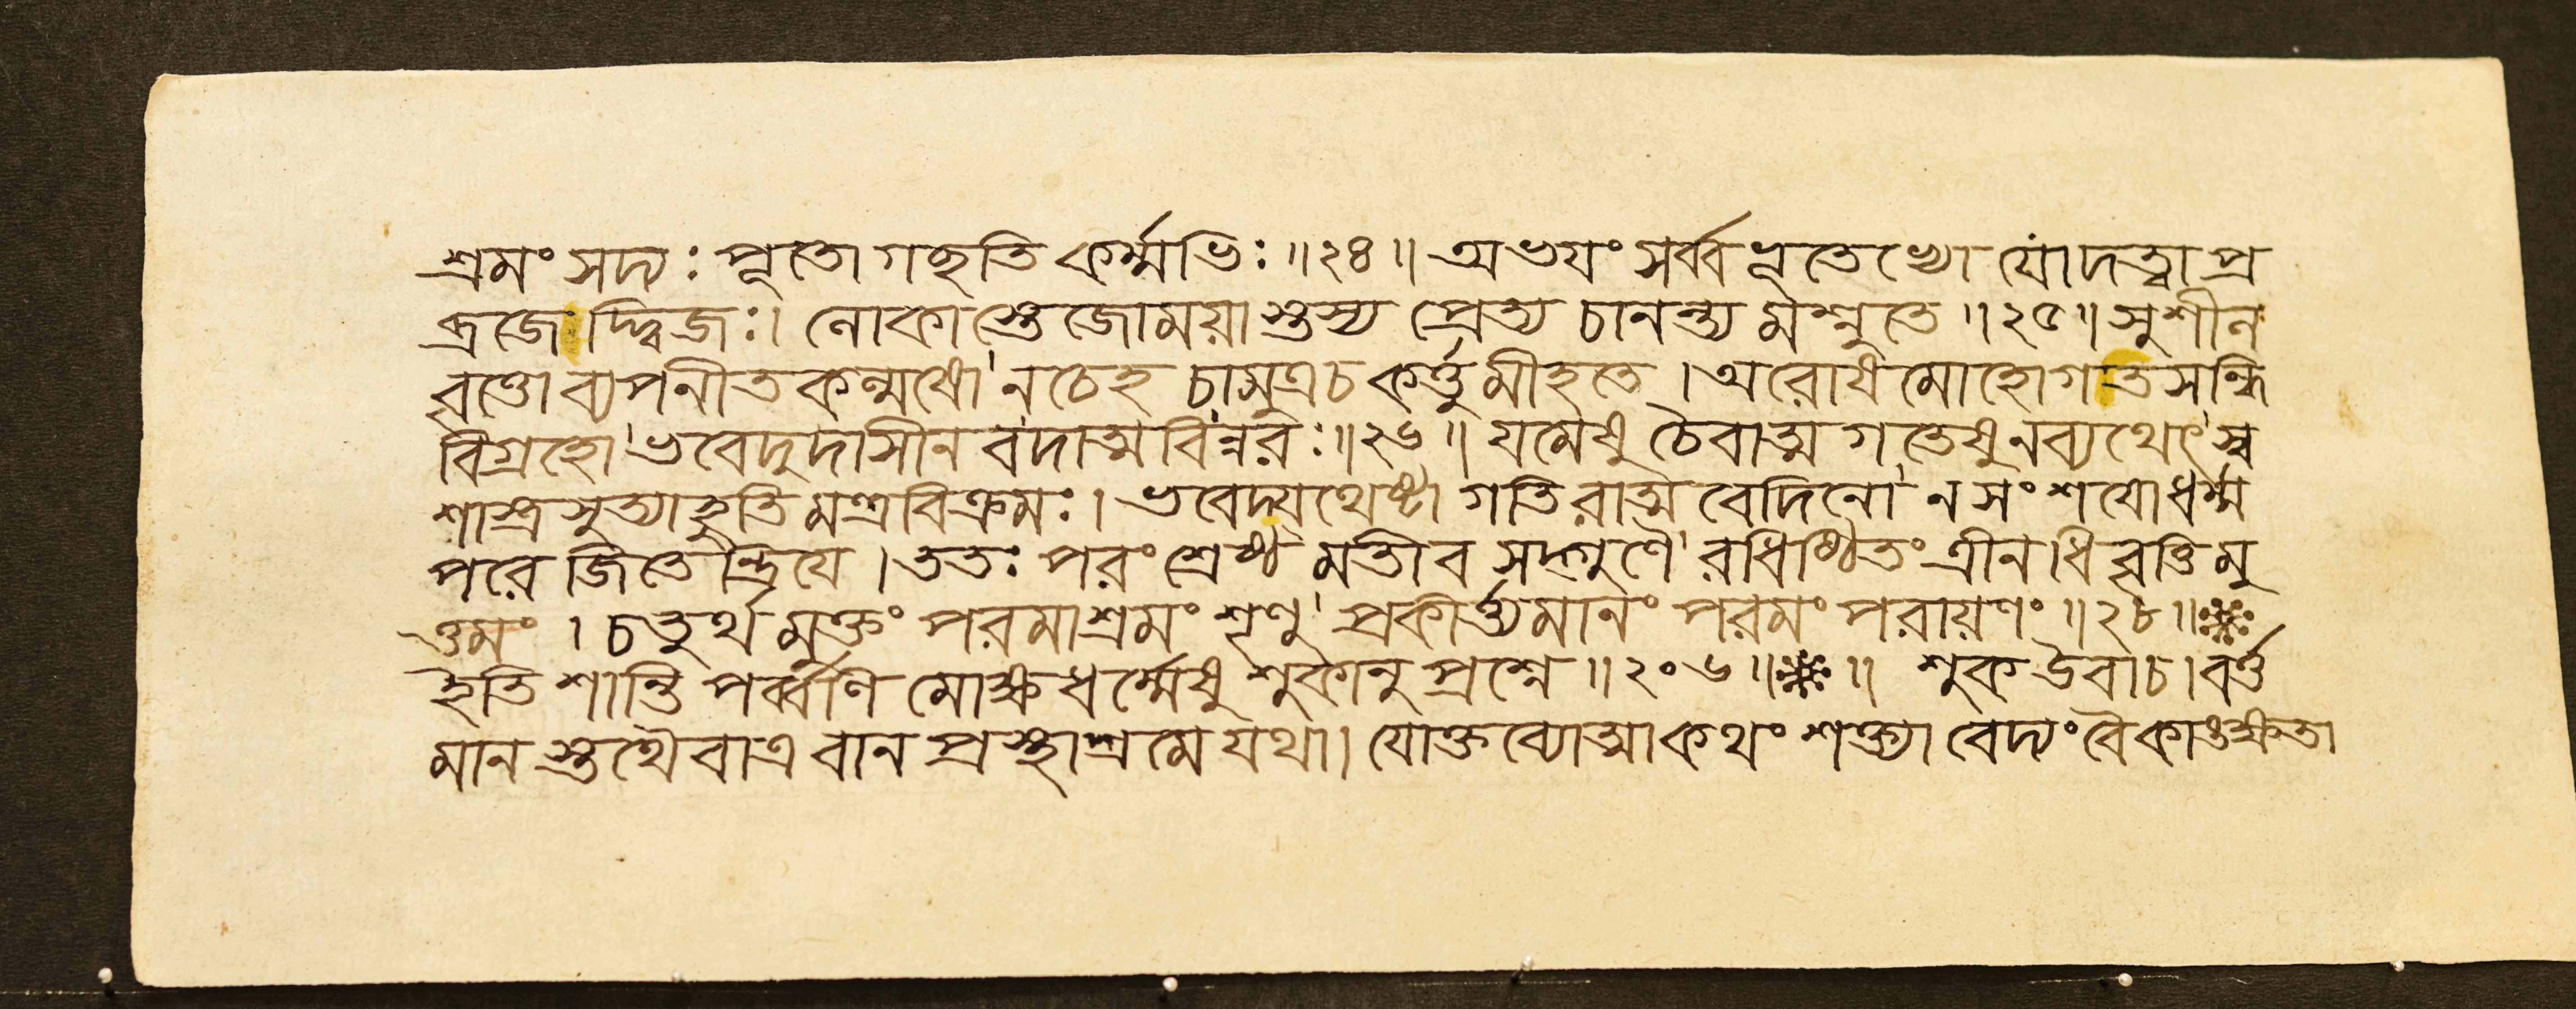 শ্রমং সদ্য: পূতো গচ্ছতি কর্ম্মভি: ॥২৪॥ অভযং সর্ব্বভূতেভ্যো যোদত্বা প্র
ব্রজেদ্দ্বিজ:। লোকাস্তেজোময়াস্তস্য প্রেত্য চানন্ত্যমশ্নুতে ॥২৫॥ সুশীল
বৃত্তো ব্যপনীতকল্মষো'নচেহ চামুত্রচ কর্ত্তুমীহতে। অরোষমোহোগতসন্ধি
বিগ্রহো'ভবেদুদাসীনবদাত্মবিন্নর:॥২৬॥ যমেষু চৈবাত্মগতেষু নব্যথেৎ'স্ব
শাস্ত্রসুত্যাহুতিমন্ত্রবিক্রম:। ভবেদ্যথেষ্টা গতিরাত্মবেদিনো'ন সংশযোধর্ম্ম
পরে জিতেন্দ্রিযে। ততঃ পরং শ্রেষ্ঠমতীব সদ্গুণৈ'রধিষ্ঠিতং ত্রীনধিবৃত্তিমু
ত্তমং। চতুর্থমুক্তং পরমাশ্রমং শৃণু'প্রকীর্ত্ত্যমানং পরমং পরায়ণং ॥২৮॥
ইতি শান্তি পর্ব্বণি মোক্ষধর্ম্মেষু শুকানুপ্রশ্নে ॥২০৬॥ ॥ শুক উবাচ। বর্ত্ত
মানস্তথৈবাত্র বানপ্রস্থাশ্রমে যথা। যোক্তব্যোত্মা কথং শক্ত্যা বেদ্যং বৈ কাঙক্ষতা